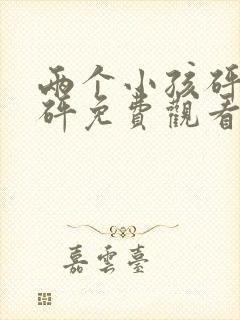 两个小孩砰
砰免費觀看
嘉雲臺